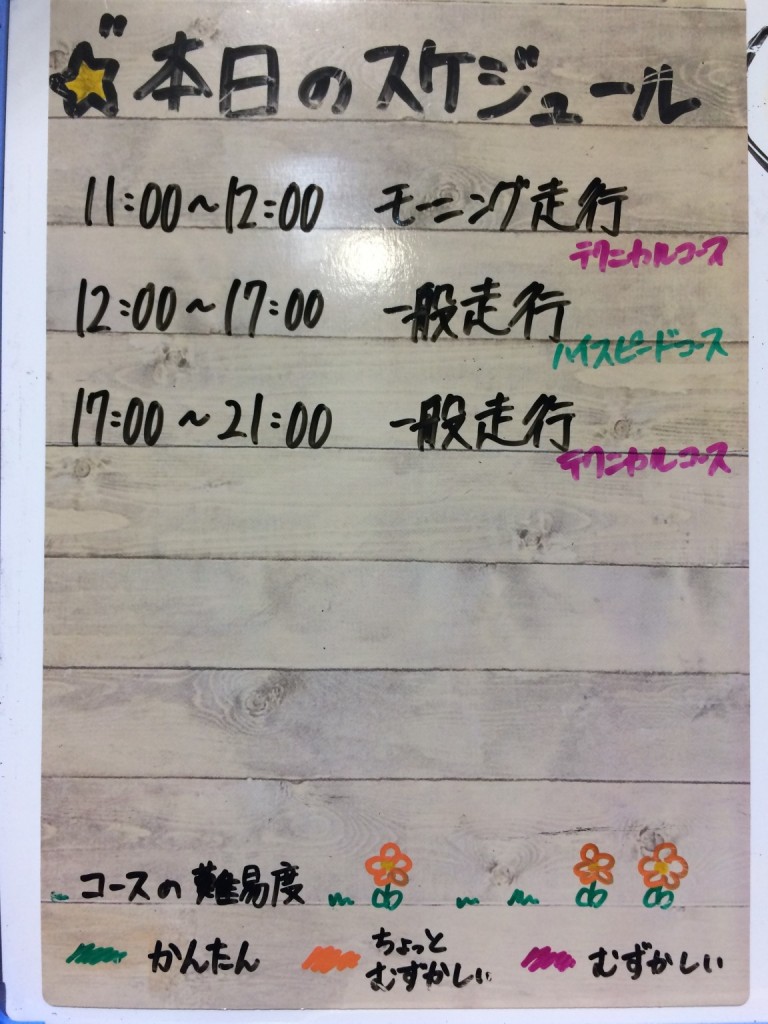 本日のスケジュール
11:00～12:00 モーニング走行
テクニカルコース
12:00～17:00 一般走行
ハイスピードコース
17:00～21:00 一般走行
テクニカルコース
コースの難易度
かんたん ちょっとむずかしい むずかしい